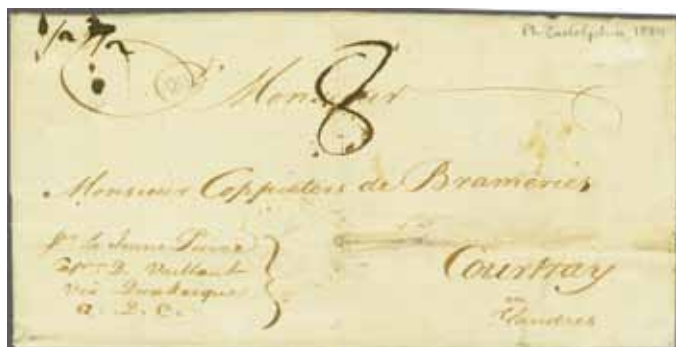 Philadelphia, 1784
1/2 7/2
8
A Monsieur
Monsieur Coppieters de Brameries
pr. Le Jeune Pierre
Capne D. Vaillant
via Dunkerque
a. D. C.
Courtray
en
Flandres